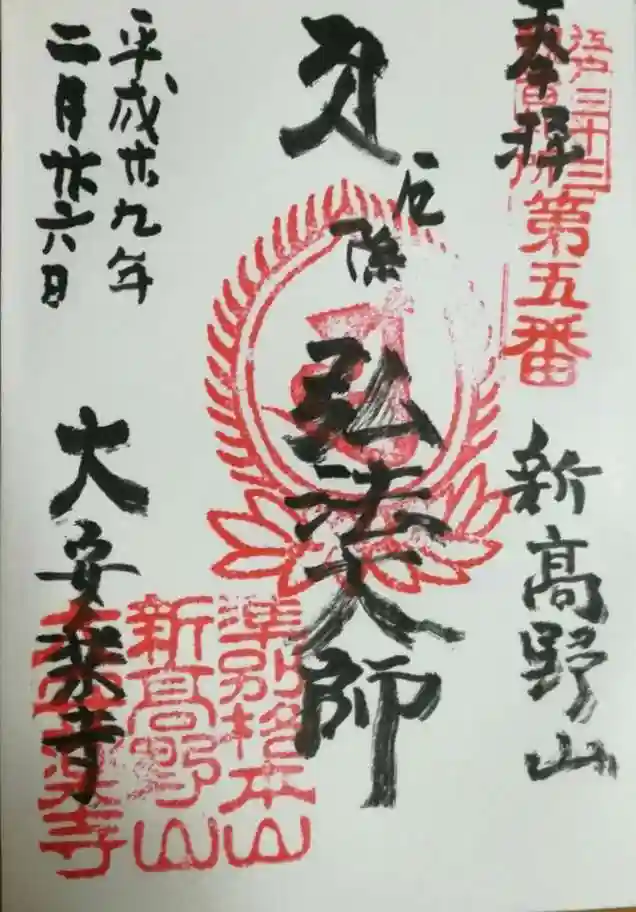 奉拝
江戸三十三
第五番
新高野山
厄除
弘法大師
平成廿九年
二月廿六日
大安楽寺
準別格本山
新高野山
大安楽寺